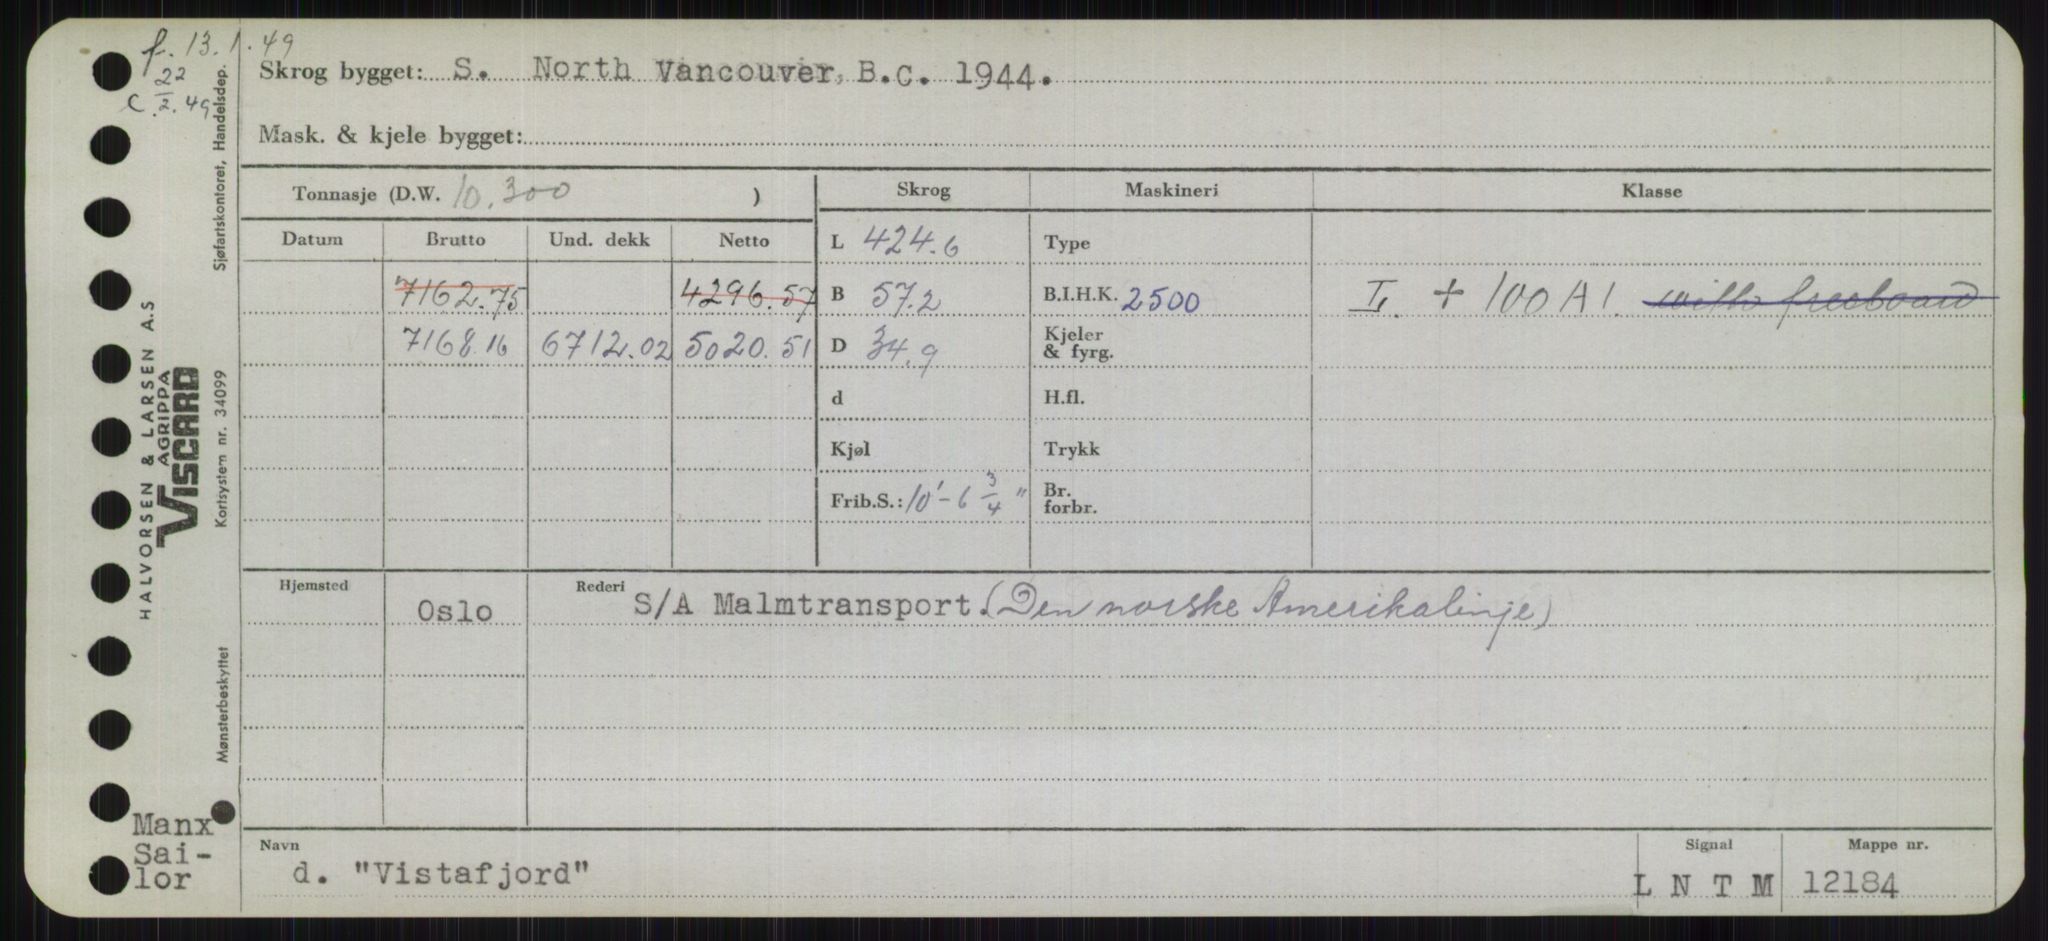 f. 13.1.49
22
C 2.49
Skrog bygget: S. North Vancouver, B.C. 1944.
Mask. & kjele bygget:
Tonnasje (D.W. 10.300 )
Skrog Maskineri Klasse
Datum Brutto Und. dekk Netto
L 424.6 Type
7162.75 4296.57 B 57.2 B.I.H.K. 2500 L. + 100 A 1. with freeboard
7168.16 6712.02 5020.51 D 34.9 Kjeler & fyrg.
d H.fl.
Kjøl Trykk
Frib.S.: 10'-6 3/4" Br. forbr.
Hjemsted Rederi
Oslo S/A Malmtransport. (Den norske Amerikalinje)
Navn Signal Mappe nr.
d. "Vistafjord" L N T M 12184
Manx
Sai-
lor
HALVORSEN & LARSEN A.S
AGRIPPA
VISCARD
Sjøfartskontoret, Handelsdep.
Kortsystem nr. 34099
Mønsterbeskyttet